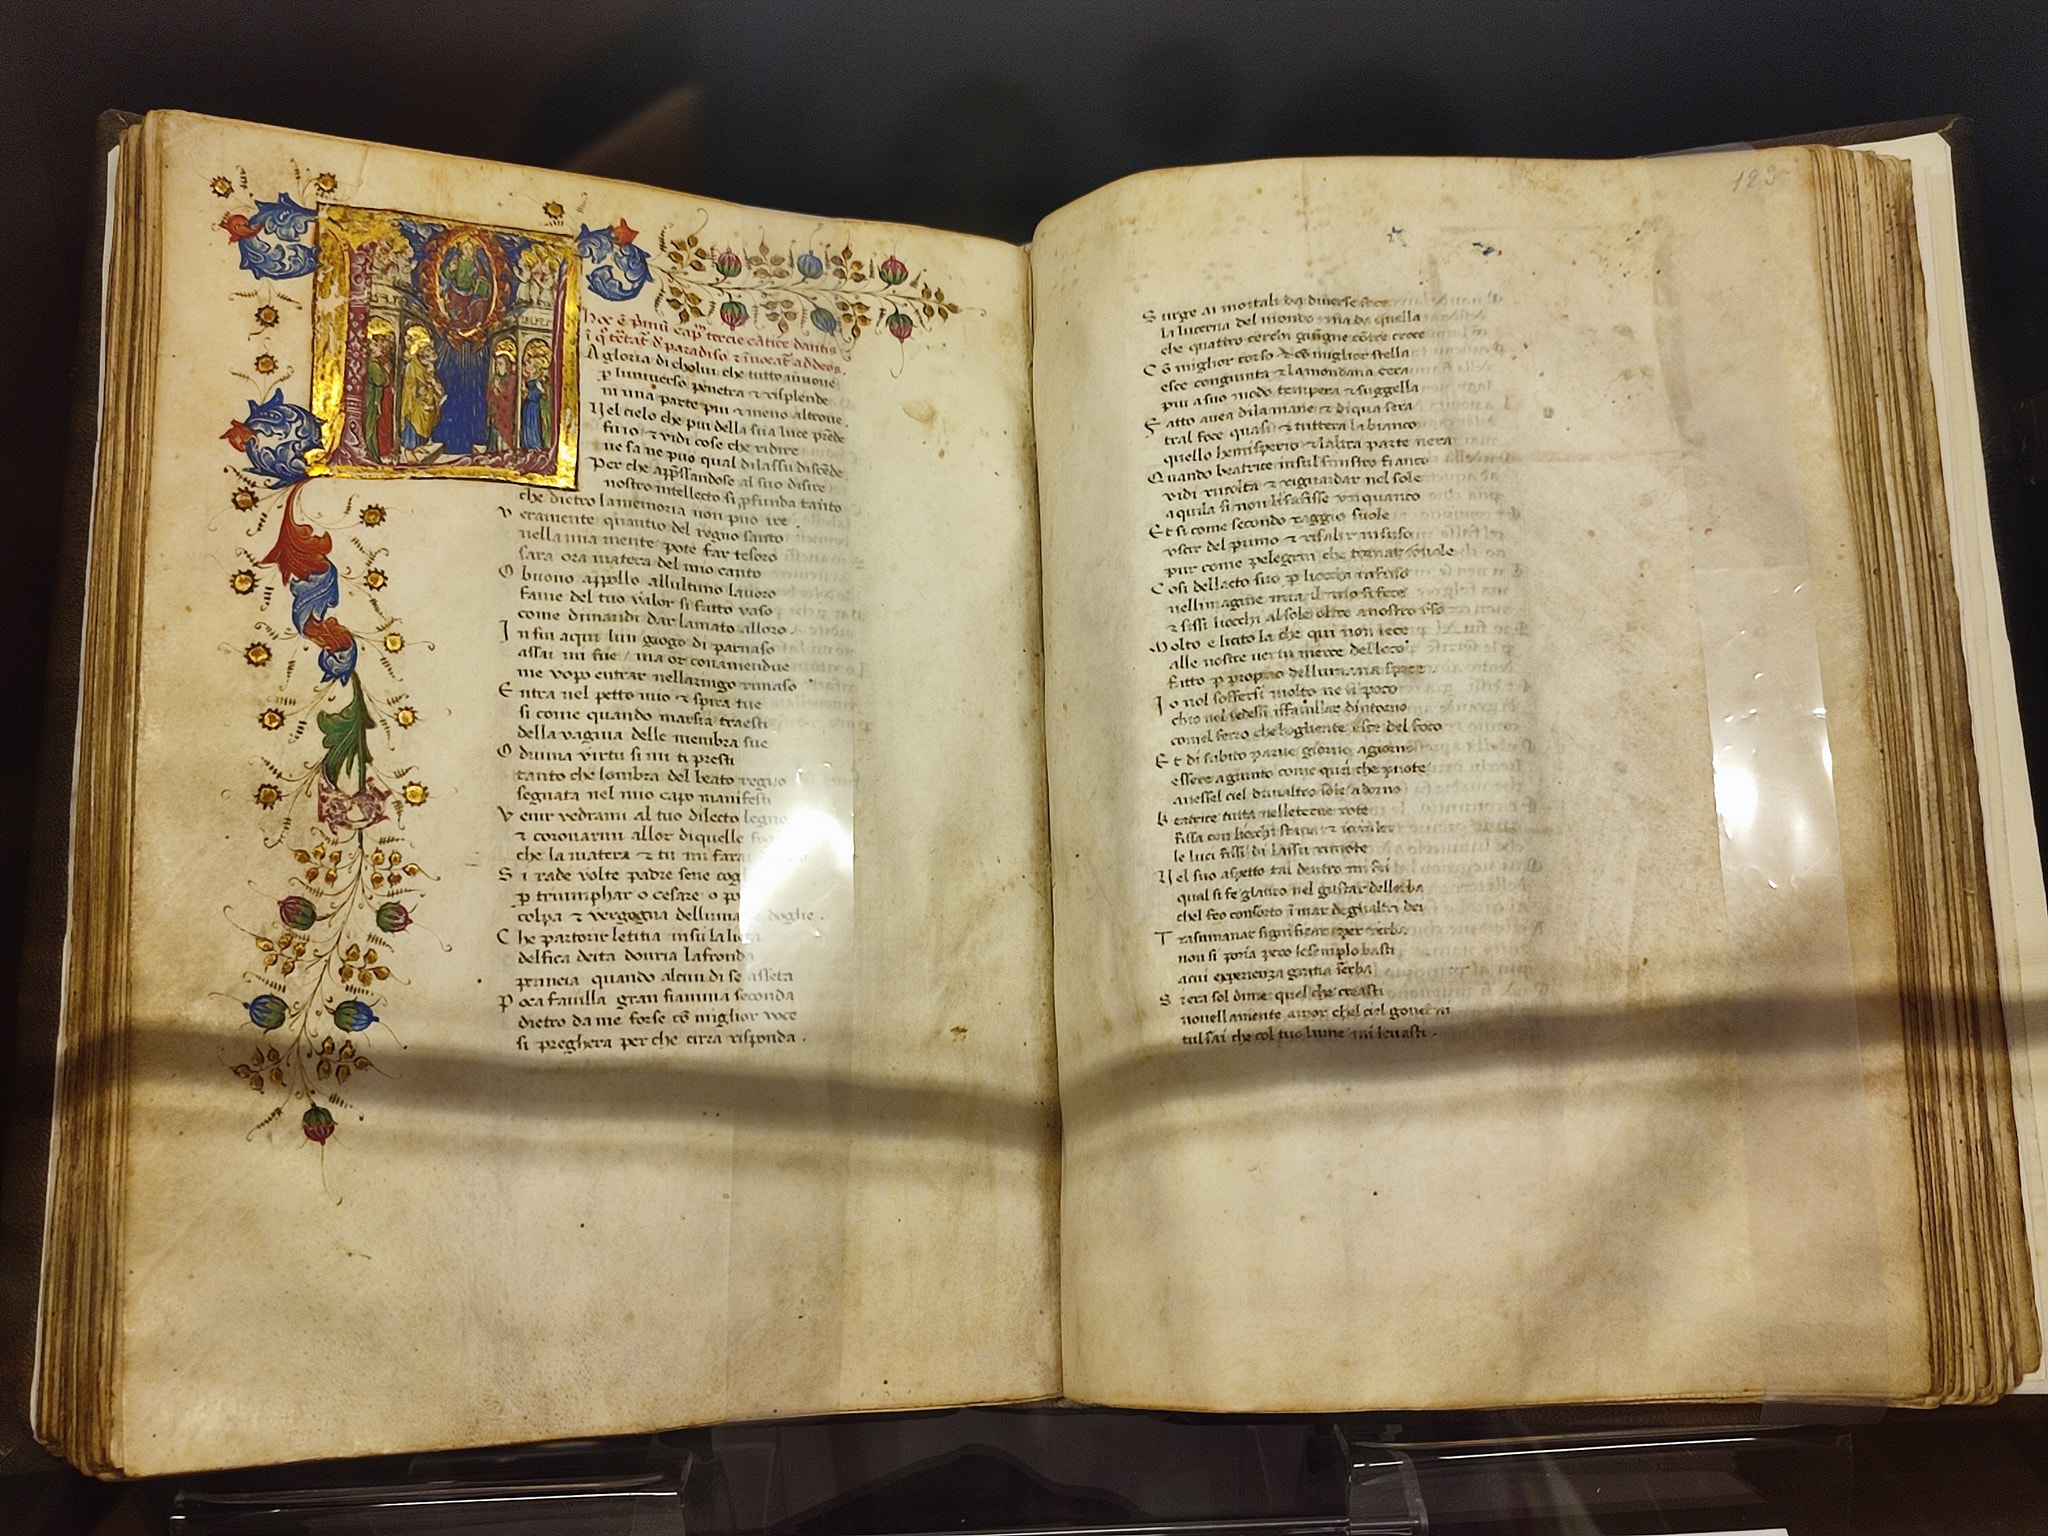 hoc ē primū cap tercie cātice dantis
i q̄ tractat d paradiso & īvocat ad deos.
A gloria di cholui che tutto muove
p luniverso penetra & risplende
in una parte piu & meno altrove.
Nel cielo che piu della sua luce prēde
fu io & vidi cose che ridire
ne sa ne puo qual dilassu discēde
Per che app̄ssandose al suo disire
nostro intellecto si p̄funda tanto
che dietro lamemoria non puo ire.
Veramente quantio del regno santo
nella mia mente pote far tesoro
sara ora matera del mio canto
O buono appollo allultimo lavoro
fame del tuo valor si fatto vaso
come dimandi dar lamato alloro
In fin aqui lun giogo di parnaso
assai mi fue / ma or conamendue
me vopo entrar nellaringo rimaso
Entra nel petto mio & spira tue
si come quando marsia traesti
della vagina delle membra sue
O divina virtu si mi ti presti
tanto che lombra del beato regno
segnata nel mio capo manifesti
Venir vedrami al tuo dilecto legno
& coronarmi allor diquelle
che la matera & tu mi farai
Si rade volte padre sene
p triumphar o cesare o
colpa & vergogna dellumane voglie.
Che partorir letitia insu la lieta
delfica deita douria lafronda
peneia quando alcun di se asseta
Poca favilla gran fiamma seconda
dietro da me forse cō miglior voce
si preghera perche cirra risponda.
123
Surge ai mortali per diverse foce
la lucerna del mondo ma da quella
che quattro cerchi gisigne cō tre croce
Cō miglior corso & cō miglior stella
esce congiunta & la mondana cera
piu a suo modo tempera & suggella
Fatto avea dila mane & diqua sera
tral foce quasi & tuttera la bianco
quello hemisperio & laltra parte nera
Quando beatrice insul sinistro fianco
vidi rivolta & riguardar nel sole
aquila si non lisafisse unquanco
Et si come secondo raggio suole
uscir del primo & risalir insuso
pur come pelegrin che tornar vuole
Cosi dellacto suo p liocchi infuso
nellimagine mia il mio si fece
& fissi liocchi al sole oltre a nostro uso
Molto e licito la che qui non lece
alle nostre vertu merce del loco
fatto p proprio dellumana spece
Io nol soffersi molto ne si poco
chio nol vedessi isfavillar dintorno
comel ferro che bogliente esce del foco
Et di subito parue giorno a giorno
essere agiunto come quei che puote
avessel ciel dunaltro sole adorno
Beatrice tutta nelleterne rote
fissa con liocchi stava &
le luci fissi di lassu rimote
Nel suo aspetto tal dentro mi fei
qual si fe glauco nel gustar dellerba
chel feo consorto ī mar deglialtri dei
Trasumanar significar per verba
non si poria pero lesemplo basti
acui esperienza gratia serba
Sera sol di me quel che creasti
novellamente amor chel ciel governi
tulsai che col tuo lume mi levasti.